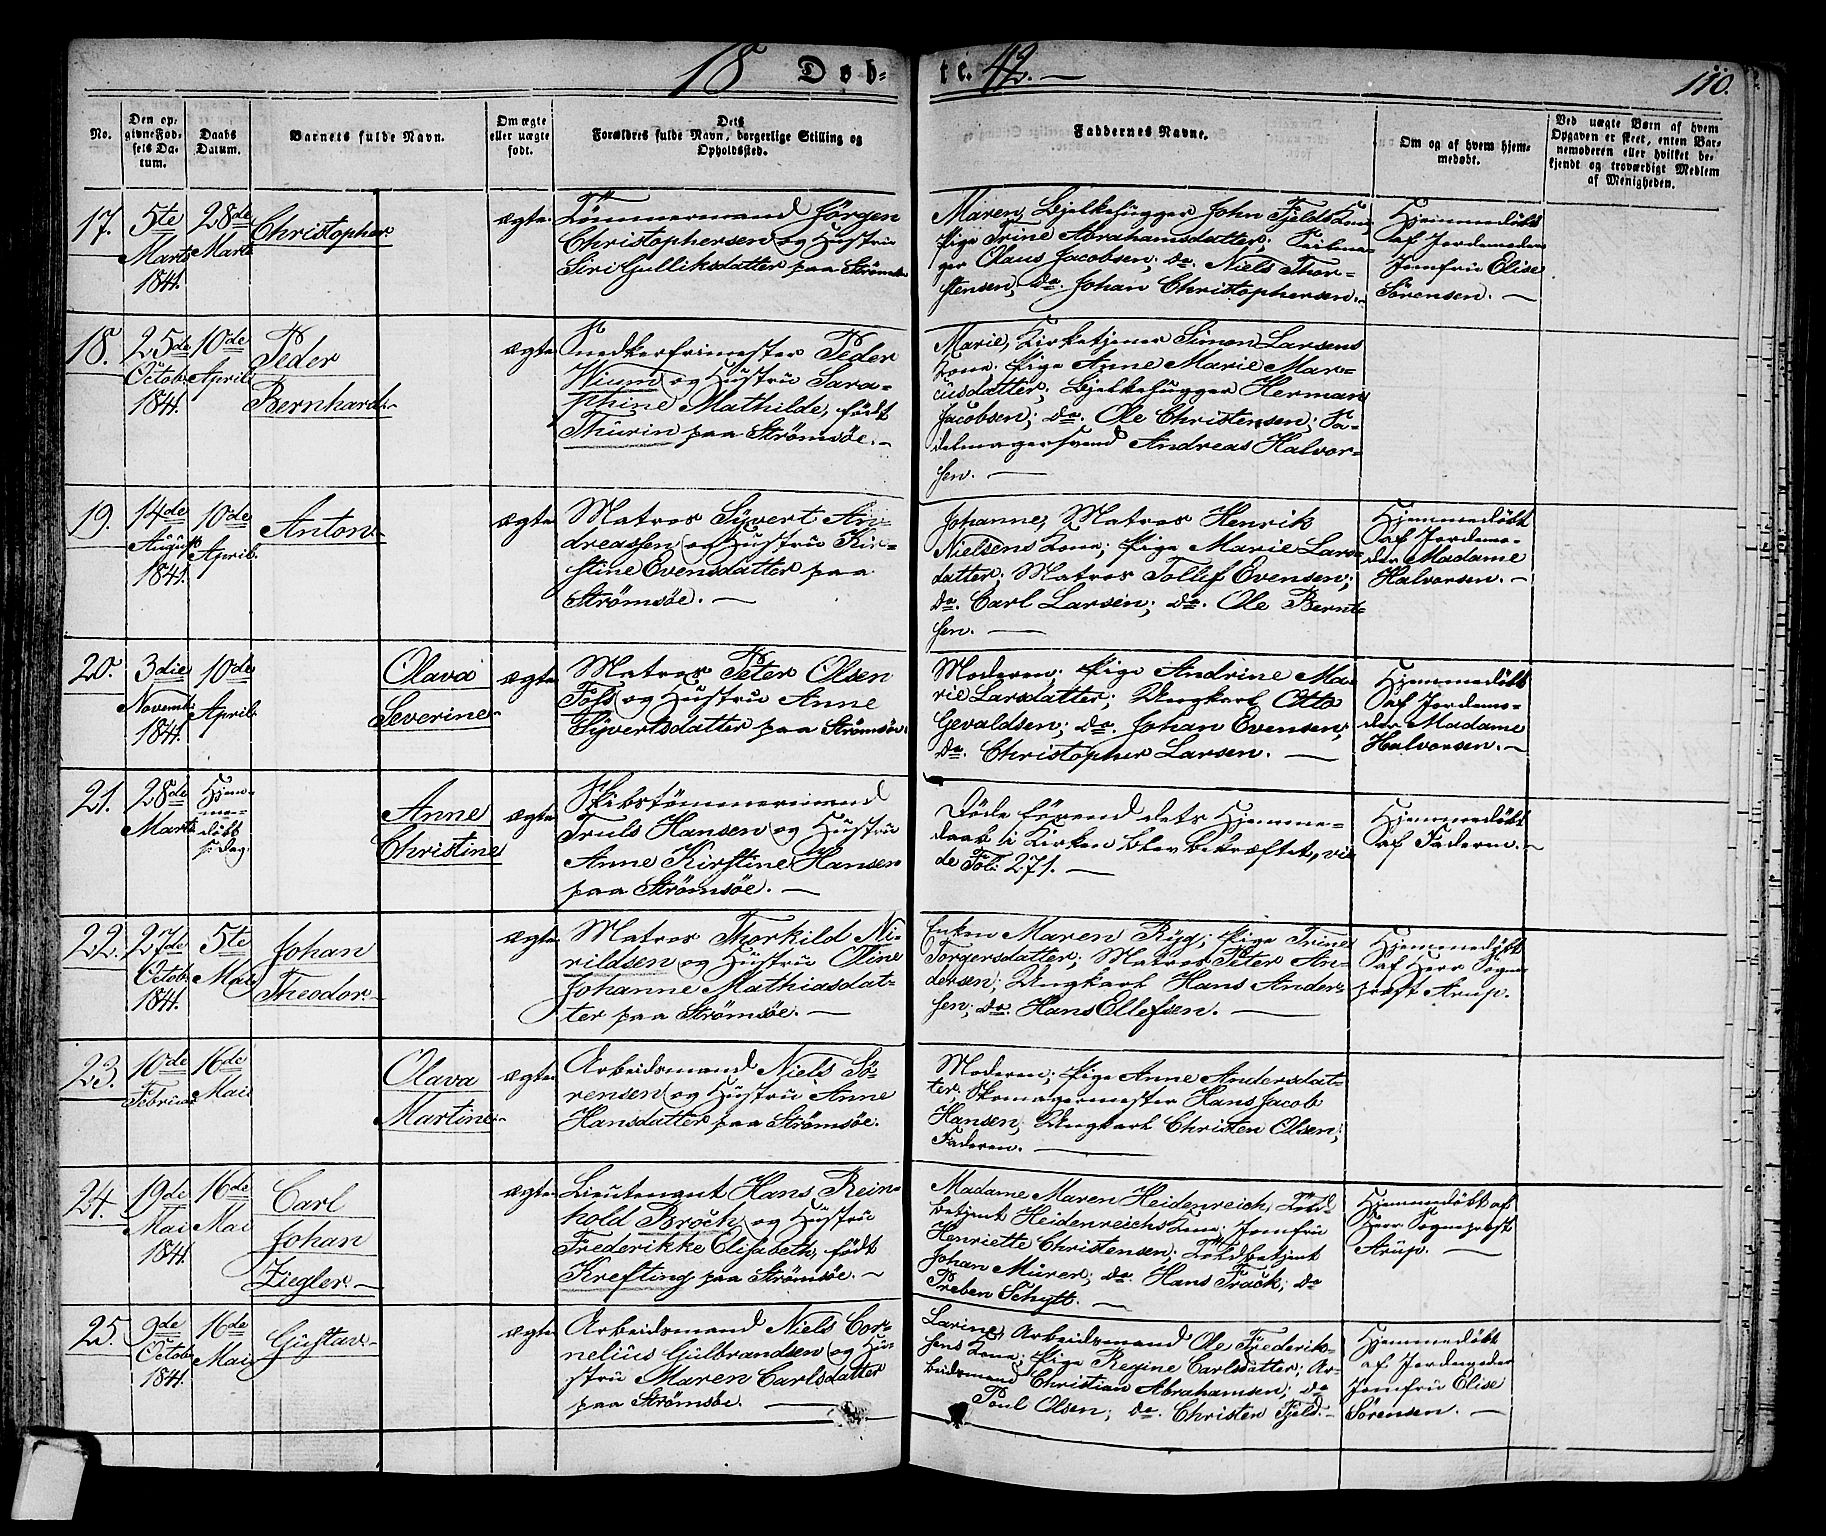 18 Døb-
te. 42.
110.
No.
Den op-
givne Fød-
sels Da-
tum.
Daabs
Datum.
Barnets fulde Navn.
Om ægte
eller uægte
født.
Det
Forældres fulde Navn, borgerlige Stilling og
Opholdssted.
Faddernes Navne.
Om og af hvem hjem-
medøbt.
Ved uægte Børn af hvem
Opgaven er skeet, enten Bar-
nemoderen eller hvilket be-
kjendt og troværdigt Medlem
af Menigheden.
17.
5te
Marts
1841.
28de
Marts
Christopher
ægte
Tømmermand Jørgen
Christophersen og Hustru
Siri Gulliksdatter paa Strømsø
Maren, Bjelkehugger John Fjelds Kone,
Pige Trine Abrahamsdatter;
Claus Jacobsen; do. Niels Thor-
stensen; do. Johan Christophersen.
Hjemmedøbt
af Jordemoder
Jomfru Elise
Sørensen.
18.
25de
Octob.
1841.
10de
April
Peder
Bernhard
ægte
Snedkerfrimester Peder
Wium og Hustru Sara-
phine Mathilde, født
Thurin paa Strømsøe.
Marie, Kirketjener Simon Larsens
Kone; Pige Anne Marie Mar-
cusdatter; Bjelkehugger Herman
Jacobsen; do. Ole Christensen; Sa-
delmagersvend Andreas Halvor-
sen.
19.
14de
August
1841.
10de
April.
Anton
ægte
Matros Syvert An-
dreassen og Hustru Kir-
stine Evensdatter paa
Strømsøe.
Johanne, Matros Henrik
Nielsens Kone; Pige Marie Lars-
datter; Matros Tollef Evensen;
do. Carl Larsen; do. Ole Bernt-
sen.
Hjemmedøbt
af Jordemo-
der Madame
Halvorsen.
20.
3die
Novemb.
1841.
10de
April.
Olava
Severine
ægte
Matros Peter Olsen
Foss og Hustru Anne
Syvertsdatter paa Strømsøe.
Moderen; Pige Andrine Ma-
rie Larsdatter; Ungkarl Otto
Gevaldsen; do. Johan Evensen;
do. Christopher Larsen.
Hjemmedøbt
af Jordemo-
der Madame
Halvorsen.
21.
28de
Marts
Hjem-
me-
døbt
s. Dag.
Anne
Christine
ægte
Skibstømmermand
Truls Hansen og Hustru
Anne Kirstine Hansen
paa Strømsøe.
Døde førend dets Hjemme-
daab i Kirken blev bekræftet, vi-
de Fol: 271.
Hjemmedøbt
af Faderen.
22.
27de
Octob.
1841.
5te
Mai
Johan
Theodor
ægte
Matros Thorkild Ni-
rildsen og Hustru Oline
Johanne Mathiasdat-
ter paa Strømsøe.
Enken Maren Ryg; Pige Trine
Torgersdatter; Matros Peter An-
dersen; Ungkarl Hans Ander-
sen; do. Hans Ellefsen.
Hjemmedøbt
af Herr Sogne-
præst Arup.
23.
10de
Februar
16de
Mai
Olava
Martine
ægte
Arbeidsmand Niels Sø-
rensen og Hustru Anne
Hansdatter paa Strømsøe.
Moderen; Pige Anne Andersdat-
ter; Skomagermester Hans Jacob
Hansen; Ungkarl Christen Olsen;
Faderen.
24.
19de
Mai
1841.
16de
Mai
Carl
Johan
Ziegler
ægte
Lieutenant Hans Rein-
hold Broch og Hustru
Frederikke Elisabeth, født
Krefting paa Strømsøe.
Madame Maren Heidenreich, Told-
betjent Heidenreichs Kone; Jomfru
Henriette Christensen; Toldbetjent
Johan Mürer; do. Hans Track; do
Preben Schytt.
Hjemmedøbt af
Herr Sognepræst
Arup.
25.
9de
Octob.
1841.
16de
Mai
Gustav
ægte
Arbeidsmand Niels Cor-
nelius Gulbrandsen og Hu-
stru Maren Carlsdatter
paa Strømsøe.
Larine, Arbeidsmand Ole Frederik-
sens Kone; Pige Regine Carlsdatter; Ar-
beidsmand Christian Abrahamsen; do
Poul Olsen; do. Christen Fjeld.
Hjemmedøbt
af Jordemoder
Jomfru Elise
Sørensen.